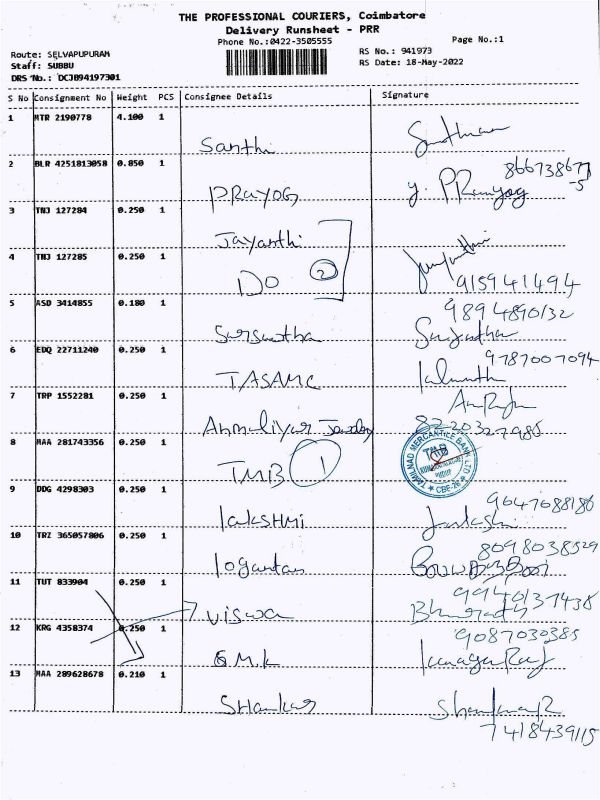 THE PROFESSIONAL COURIERS, Coimbatore
Delivery Runsheet - PRR
Phone No.:0422-3505555
Page No.:1
Route: SELVAPUPURAM
Staff: SUBBU
DRS No.: DCJB94197301
RS No.: 941973
RS Date: 18-May-2022
S No Consignment No Weight PCS Consignee Details Signature
1 MTR 2190778 4.100 1
Santhi
2 BLR 4251813058 0.850 1
PRAYOG
3 TNJ 127284 0.250 1
Jayanthi
4 TNJ 127285 0.250 1
DO 2
915941494
5 ASD 3414855 0.180 1
9894890132
6 EDQ 22711240 0.250 1
9787007094
TASAMC
7 TRP 1552281 0.250 1
8 MAA 281743356 0.250 1
TAMILNAD MERCANTILE BANK LTD
TMB
CBE-26
TMB 1
9 DDG 4298303 0.250 1
9047088186
lakSHMi
10 TRZ 365057806 0.250 1
8098038529
11 TUT 833904 0.250 1
9940137438
Viswa
12 KRG 4358374 0.250 1
9087030385
G.M.K
kanagaRaj
13 MAA 289628678 0.210 1
SHankar
ShankaR
7418439115